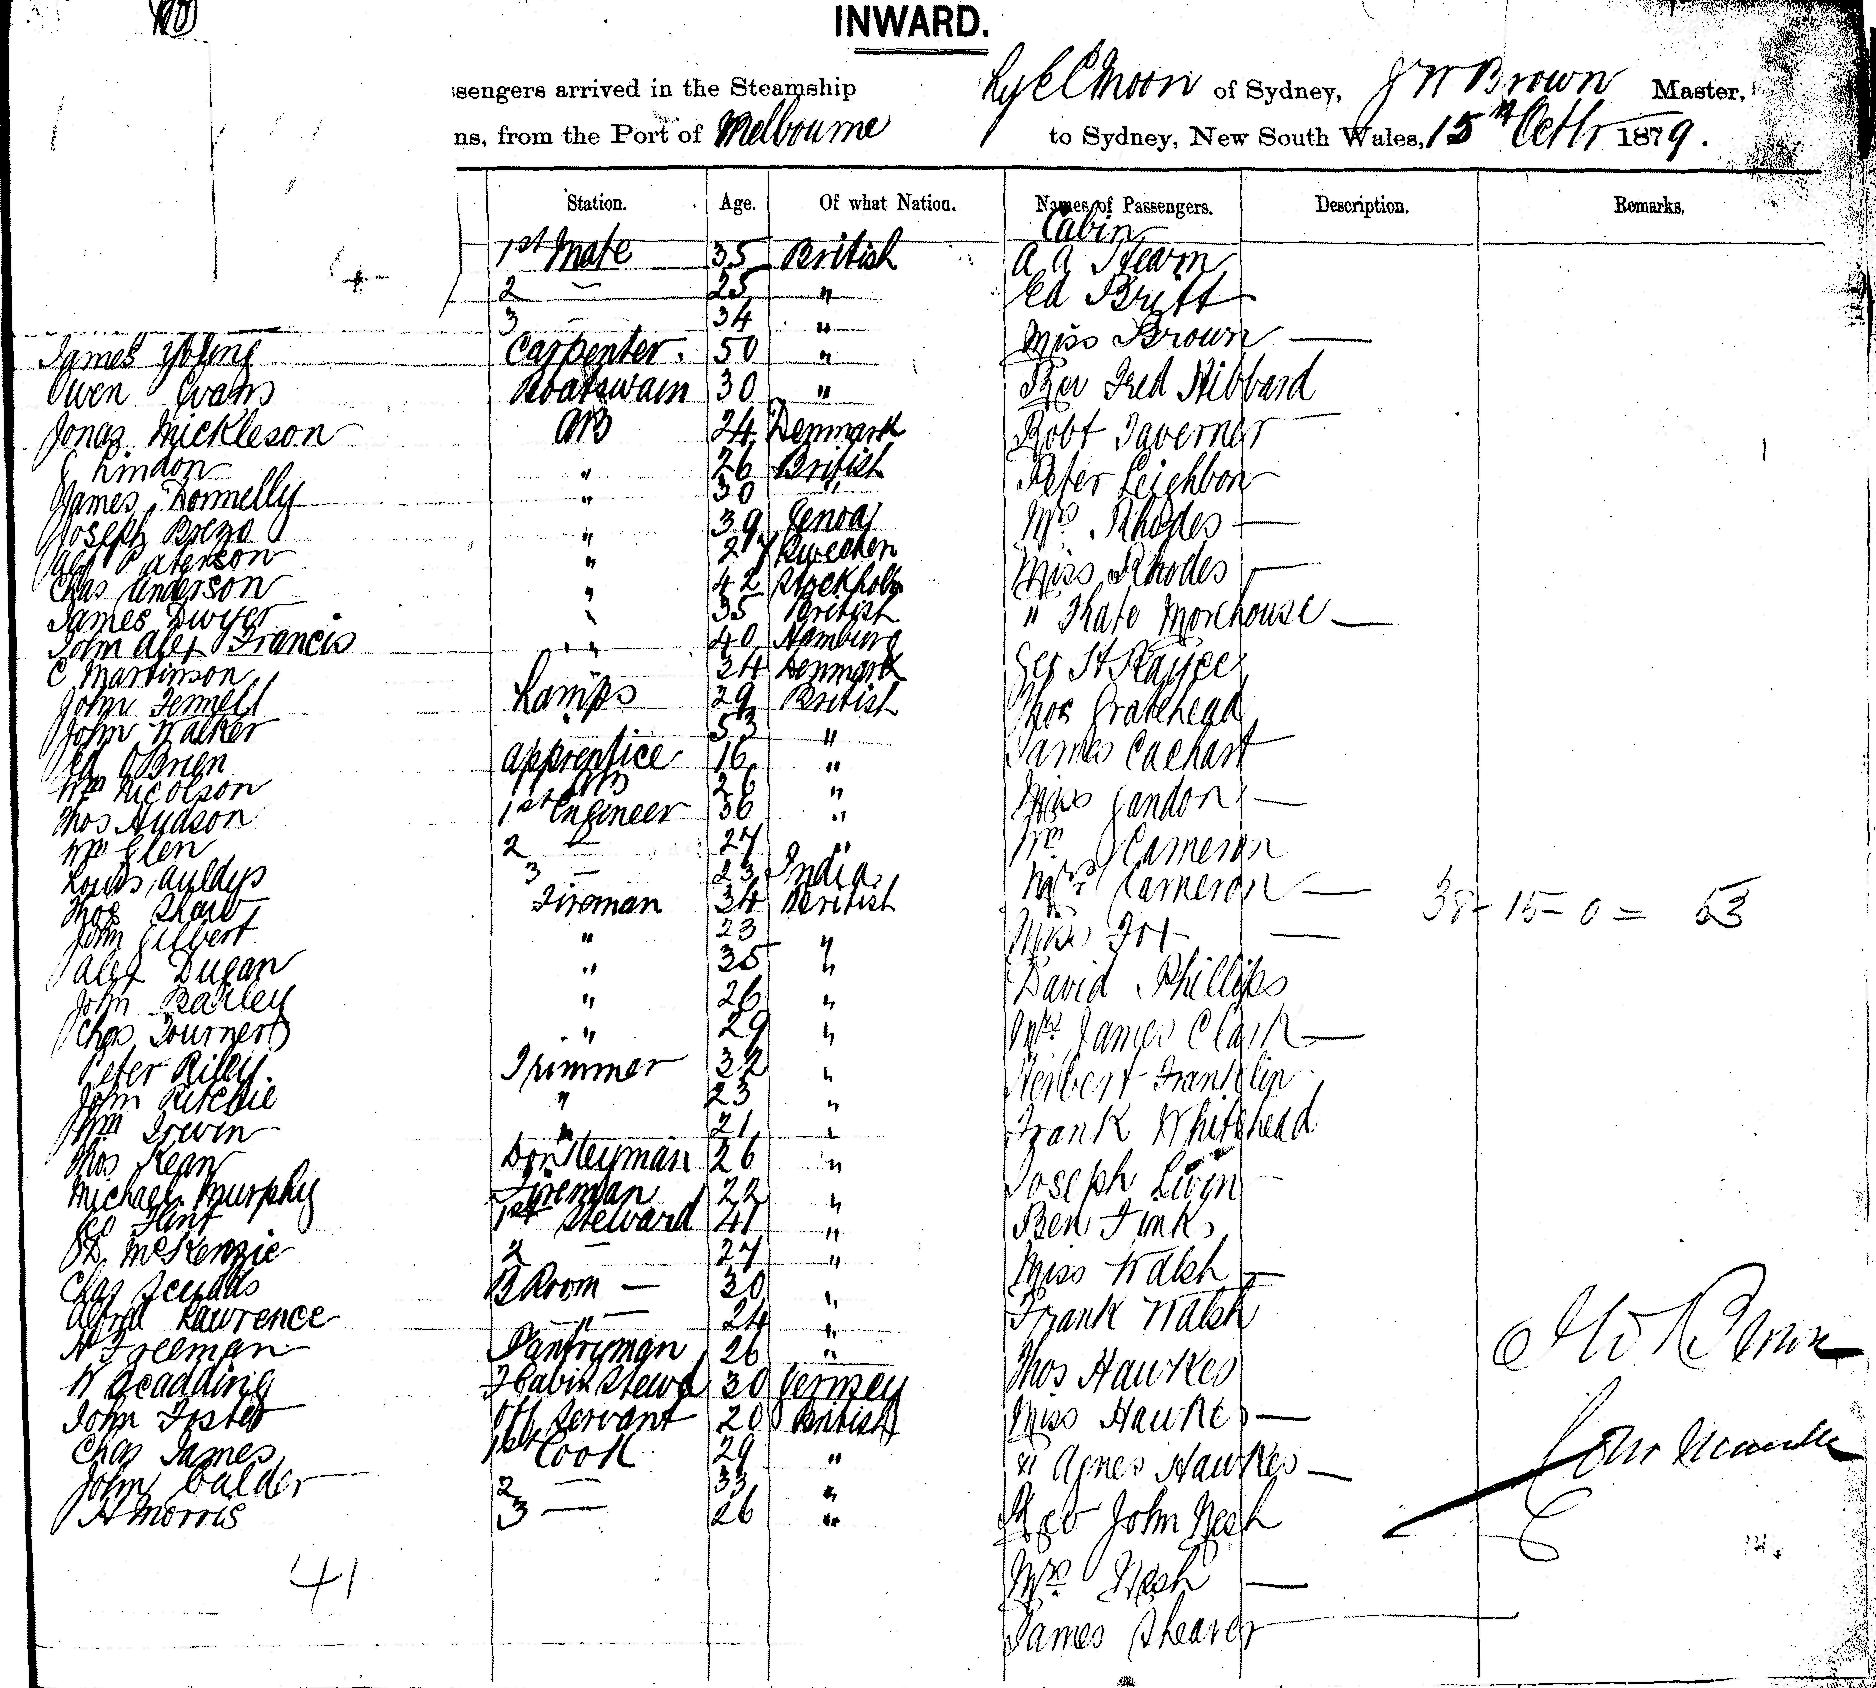 INWARD.
sengers arrived in the Steamship Ly ee Moon of Sydney, J W Brown Master,
ns, from the Port of Melbourne to Sydney, New South Wales, 15th Octbr 1879.
Station. Age. Of what Nation. Names of Passengers. Description. Remarks.
Cabin
1st Mate 35 British A A Hearn
2 — 25 " Ed Britt
3 — 34 " Miss Brown —
James Young Carpenter. 50 "
Owen Evans Boatswain 30 " Rev Fred Hibbard
Jonas Mickleson AB 24 Denmark Robt Taverner
Lindon " 26 British Peter Leighbon
James Donnelly " 30 "
Joseph " 39 Genoa Mrs. Rhodes —
Paterson " 27
Chas Anderson " 42 Stockholm Miss Rhodes —
James Dwyer " 35 British " Morehouse —
John Alex Francis " 40 Hamburg
C Martinson 24 Denmark Geo
John Lamps 29 British Thos Gratehead
John Walker 53 "
Ed OBrien Apprentice 16 " James
Wm Nicolson AB 26 "
Thos Hudson 1st Engineer 36 " Miss —
Wm Glen 2 — 27 " Wm Cameron
Louis 3 — 23 India Mrs Cameron —
Thos Shaw Fireman 34 British 38 - 15 - 0 = 53
John Gilbert " 23 " Miss Fox —
Alex Dugan " 35 " David Phillips
John Bailey " 26 "
Chas " 29 " Mrs James Clark —
Peter Rilly. Trimmer 32 " Herbert Franklin
John Ritchie " 23 "
Wm Irwin " 21 " Frank Whitehead
Thos Kean Donkeyman 26 " Joseph
Michael Murphy Fireman 22 "
Flint 1st Steward 41 " Ben Fink
McKenzie 2 — 27 " Miss Walsh —
Chas B Room — 30 "
Alfred Lawrence " — 24 " Frank Walsh
Freeman Pantryman 26 " Thos Hawkes
W Scadding F Cabin Stewd 30 Jersey
John Foster Servant 20 British Miss Hawkes —
Chas James 1st Cook 29 " " Agnes Hawkes —
John Calder 2 — 33 "
H Morris 3 — 26 " Rev John Nesh
41 Mrs Nesh —
James Shearer
J W Brown